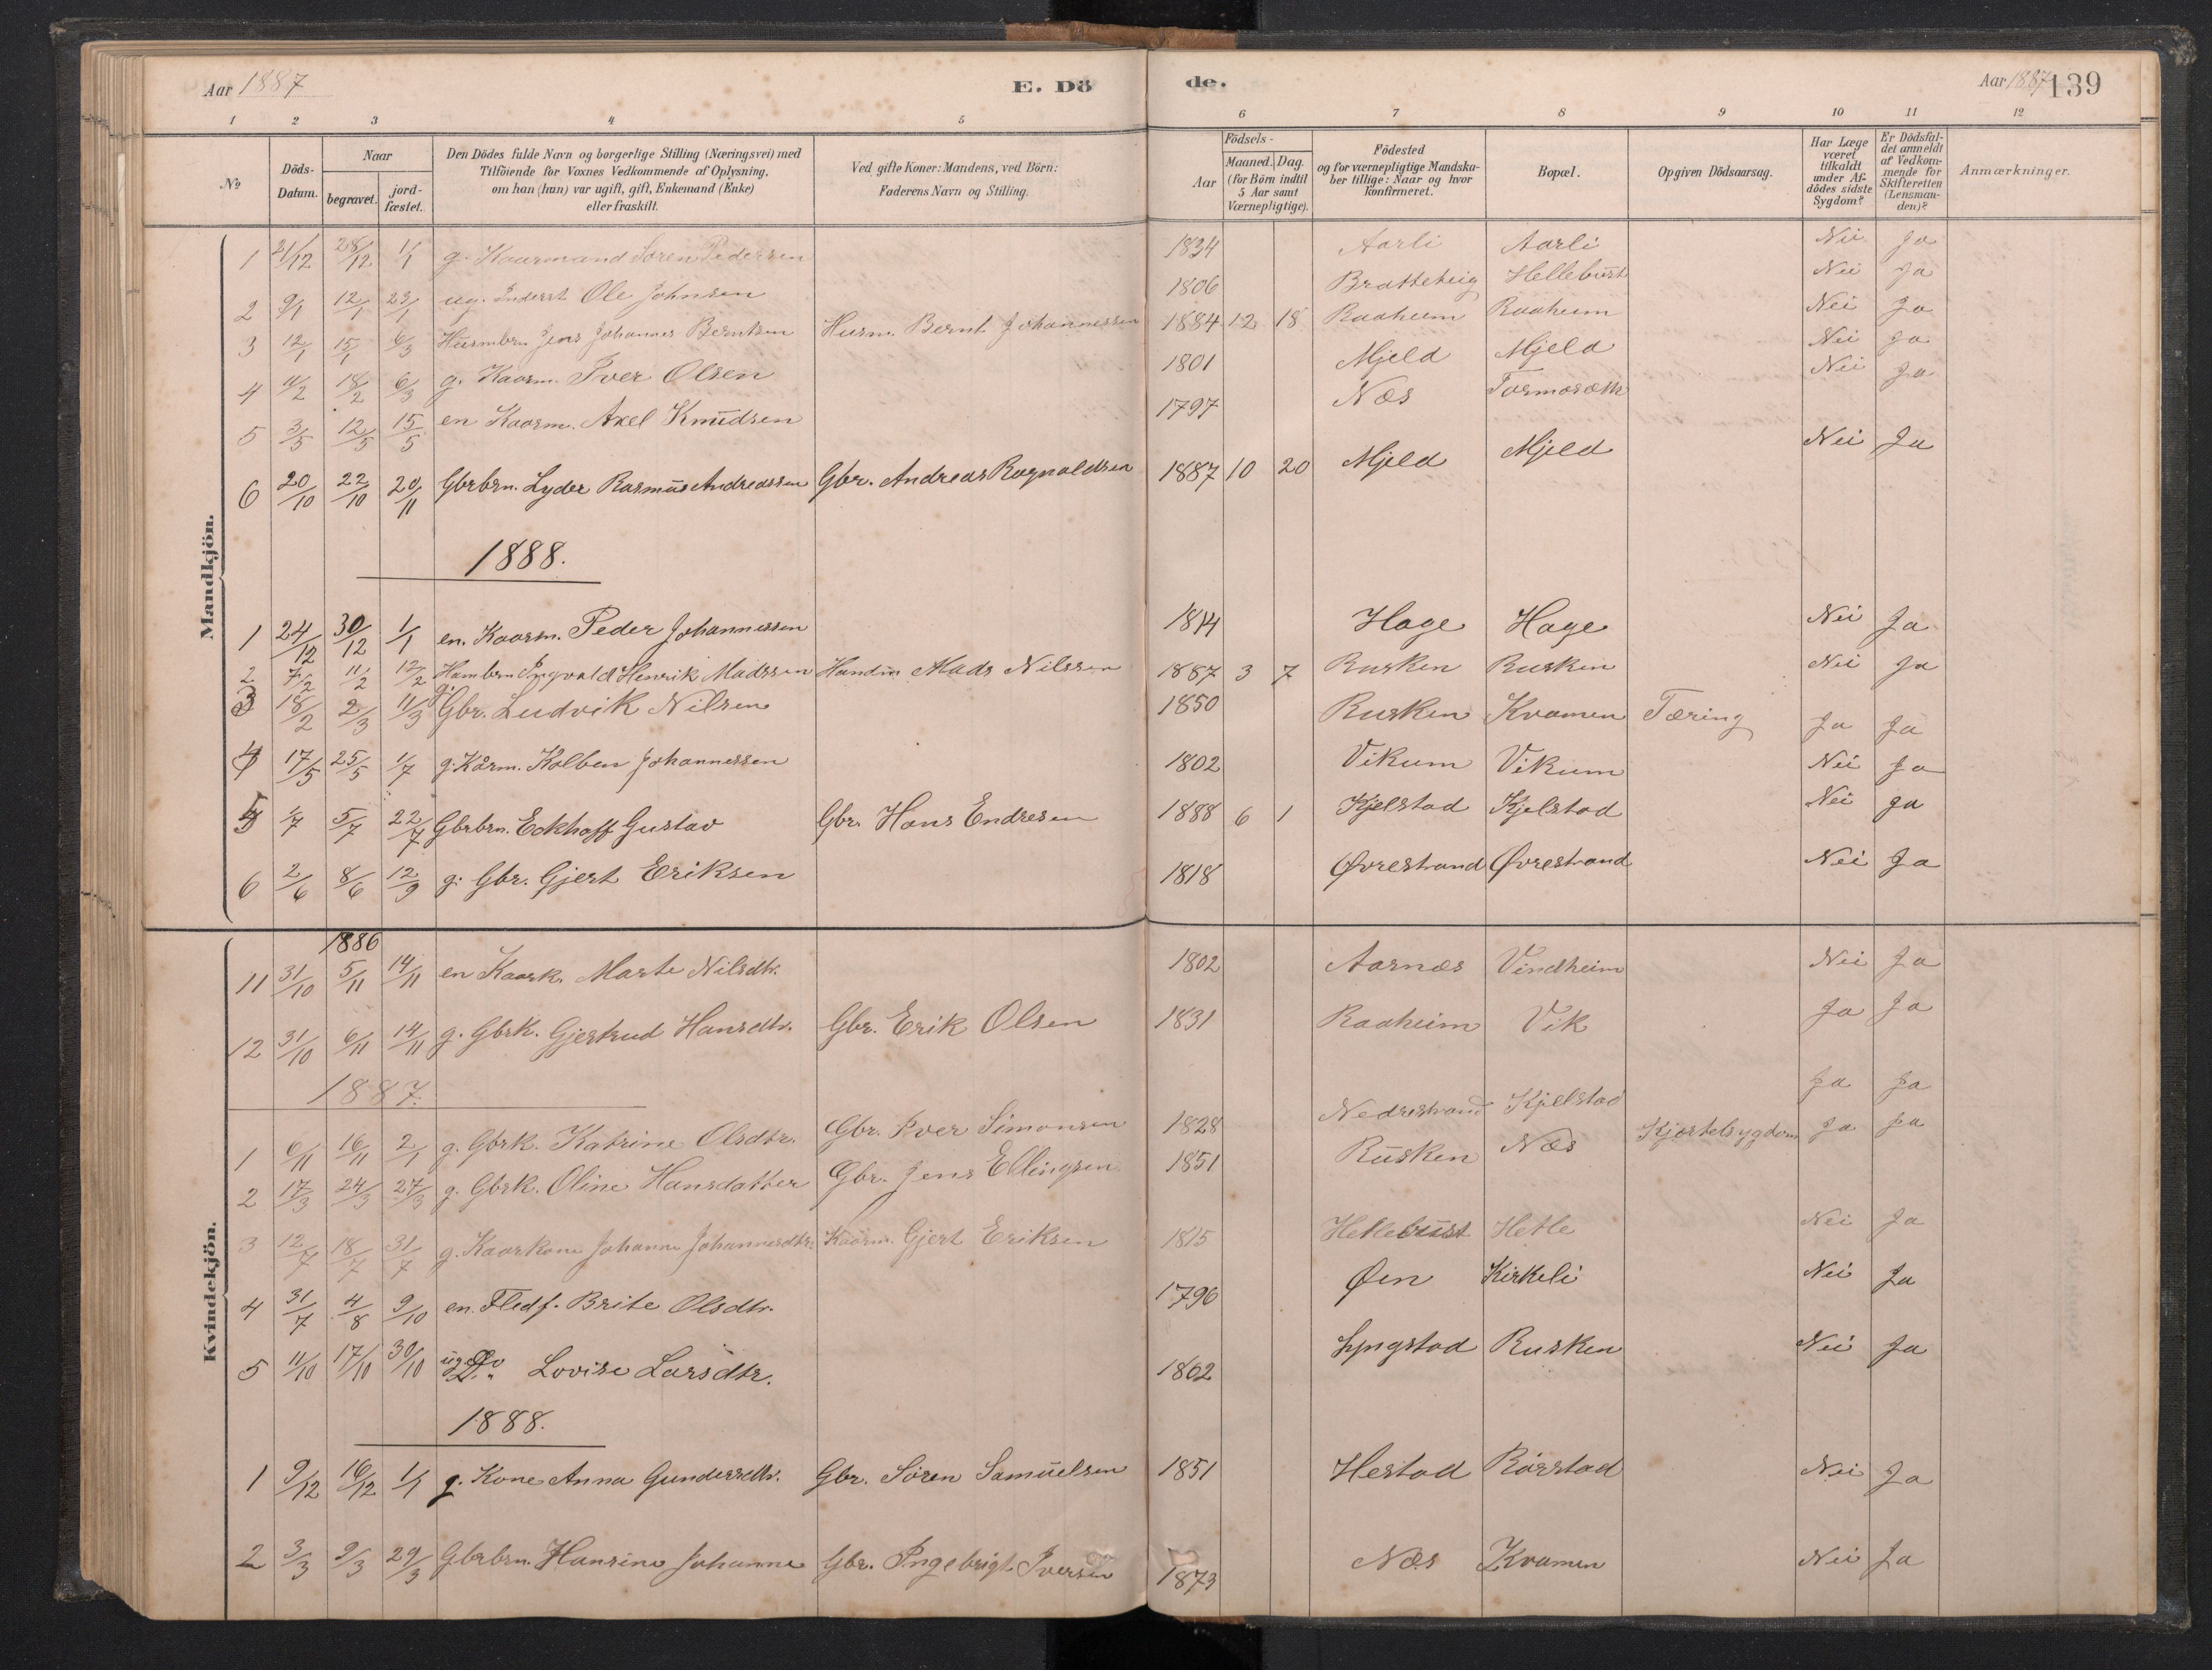 Aar 1887 E. Dö de. Aar 1887 139
1 2 3 4 5 6 7 8 9 10 11 12
№ Döds-Datum. Naar begravet. jord-fæstet. Den Dödes fulde Navn og borgerlige Stilling (Næringsvei) med Tilföiende for Voxnes Vedkommende af Oplysning, om han (hun) var ugift, gift, Enkemand (Enke) eller fraskilt. Ved gifte Koner: Mandens, ved Börn: Faderens Navn og Stilling. Födsels- Aar Maaned. Dag. (for Börn indtil 5 Aar samt Værnepligtige). Födested og for værnepligtige Mandska-ber tillige: Naar og hvor konfirmeret. Bopæl. Opgiven Dödsaarsag. Har Læge været tilkaldt under Af-dödes sidste Sygdom? Er Dödsfal-det anmeldt af Vedkom-mende for Skifteretten (Lensman-den)? Anmærkninger.
Mandkjön.
1 21/12 28/12 1/1 g. Kaarmand Søren Pedersen 1834 Aarli Aarli Nei Ja
2 9/1 12/1 23/1 ug. Inderst Ole Johnsen 1806 Bratteteig Hellebust Nei Ja
3 12/1 15/1 6/3 Husmbrn Jens Johannes Berntsen Husm. Bernt Johannessen 1884 12 18 Raaheim Raaheim Nei Ja
4 11/2 18/2 6/3 g. Kaarm. Iver Olsen 1801 Mjeld Mjeld Nei Ja
5 3/5 12/5 15/5 en Kaarm. Axel Knudsen 1797 Næs Tormosæth Nei Ja
6 20/10 22/10 20/11 Gbrbrn. Lyder Rasmus Andreassen Gbr. Andreas Ragnvaldsen 1887 10 20 Mjeld Mjeld Nei Ja
1888.
1 24/12 30/12 1/1 en. Kaarm. Peder Johannessen 1814 Hage Hage Nei Ja
2 7/2 11/2 12/2 Hambrn Ingvald Henrik Madssen Handm Mads Nilssen 1887 3 7 Rusken Rusken Nei Ja
3 18/2 2/3 11/3 g. Gbr. Ludvik Nilsen 1850 Rusken Kvamen Tæring Ja Ja
4 17/5 25/5 1/7 g. Kårm. Kolben Johannessen 1802 Vikum Vikum Nei Ja
5 1/7 5/7 22/7 Gbrbrn. Eckhoff Gustav Gbr. Hans Endresen 1888 6 1 Kjelstad Kjelstad Nei Ja
6 2/6 8/6 12/9 g. Gbr. Gjert Eriksen 1818 Øvrestrand Øvrestrand Nei Ja
Kvindekjön.
1886
11 31/10 5/11 14/11 en Kaark. Marte Nilsdtr. 1802 Aarnæs Vindheim Nei Ja
12 31/10 6/11 14/11 g. Gbrk. Gjertrud Hansdtr. Gbr. Erik Olsen 1831 Raaheim Vik Ja Ja
1887.
1 6/11 16/11 2/1 g. Gbrk. Katrine Olsdtr. Gbr. Iver Simonsen 1828 Nedrestrand Kjelstad Ja Ja
2 17/3 24/3 27/3 g. Gbrk. Oline Hansdatter Gbr. Jens Ellingsen 1851 Rusken Næs Kjertelsygdom Ja Ja
3 12/7 18/7 31/7 g. Kaarkone Johanne Johannesdtr. Kaarm. Gjert Eriksen 1815 Hellebust Hetle Nei Ja
4 31/7 4/8 9/10 en. Fledf. Brite Olsdtr. 1796 Øen Kirkeli Nei Ja
5 11/10 17/10 30/10 ug. Do Lovise Larsdtr. 1802 Lyngstad Rusken Nei Ja
1888.
1 9/12 16/12 1/1 g. Kone Anna Gundersdtr. Gbr. Søren Samuelsen 1851 Hestad Rørstad Nei Ja
2 3/3 9/3 29/3 Gbrbrn. Hansine Johanne Gbr. Ingebrigt Iversen 1873 Næs Kvamen Nei Ja